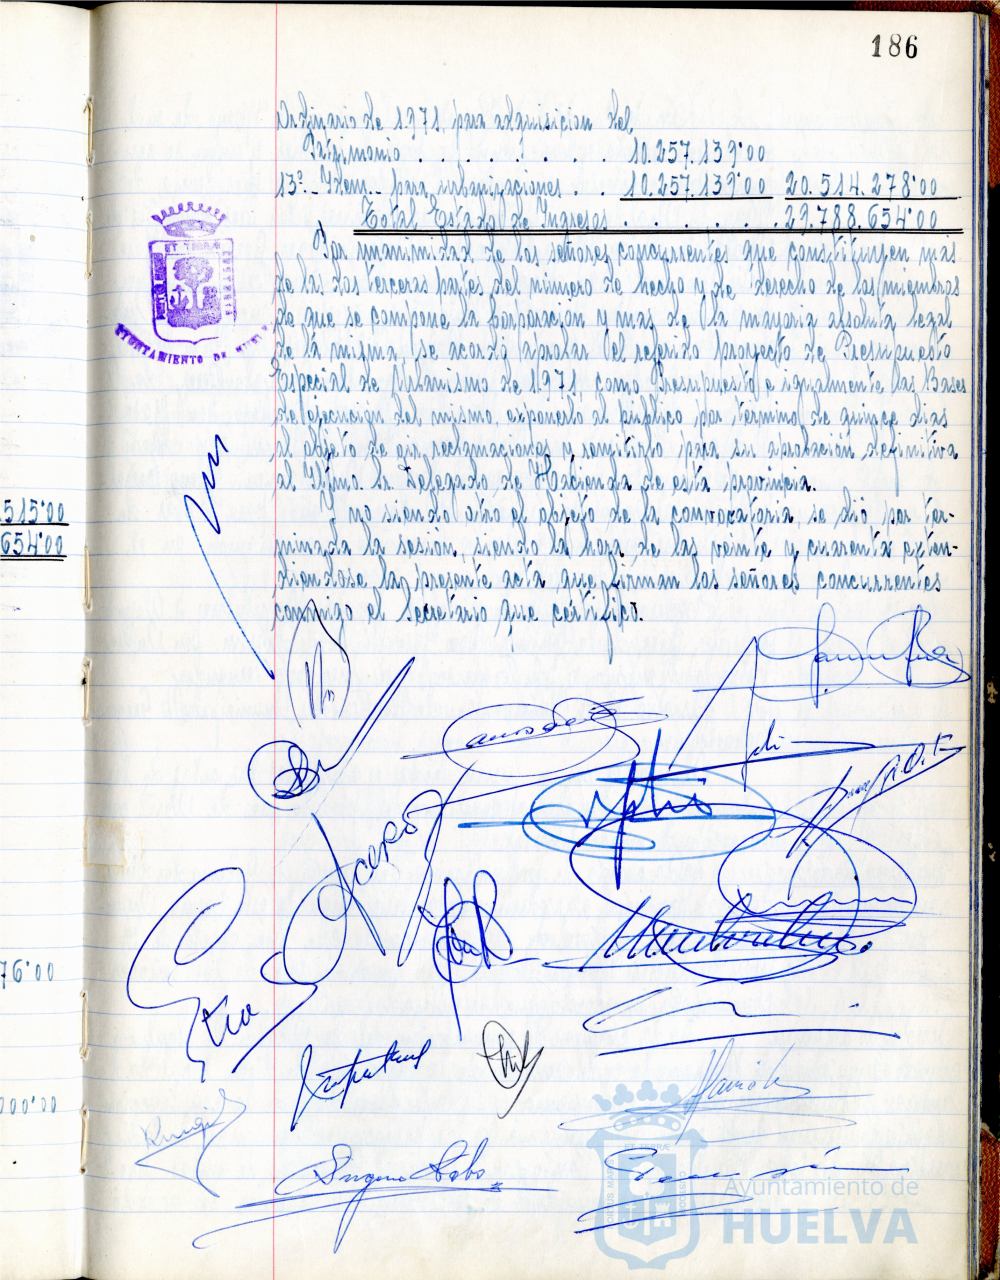 186
Ordinario de 1.971, para adquisicion del
Patrimonio . . . . . . . . 10.257.139'00
13º.- Idem.- para urbanizaciones . 10.257.139'00 20.514.278'00
Total Estado de Ingresos . . . . . . . . 29.788.654'00
Por unanimidad de los señores concurrentes que constituyen mas
de las dos terceras partes del número de hecho y de derecho de los miembros
de que se compone la Corporación y mas de la mayoria absoluta legal
de la misma, se acordó aprobar el referido proyecto de Presupuesto
Especial de Urbanismo de 1.971, como Presupuesto e igualmente las Bases
de ejecución del mismo, exponerlo al público por termino de quince dias
al objeto de oir reclamaciones y remitirlo para su aprobación definitiva
al Iltmo. Sr. Delegado de Hacienda de esta provincia.
Y no siendo otro el objeto de la convocatoria, se dió por ter-
minada la sesión, siendo la hora de las veinte y cuarenta exten-
diendose la presente acta que firman los señores concurrentes
conmigo el Secretario que certifico.
515'00
654'00
76'00
000'00
AYUNTAMIENTO DE
ET TERRÆ
PORTUS MARIS
CUSTODIA
Ayuntamiento de
HUELVA